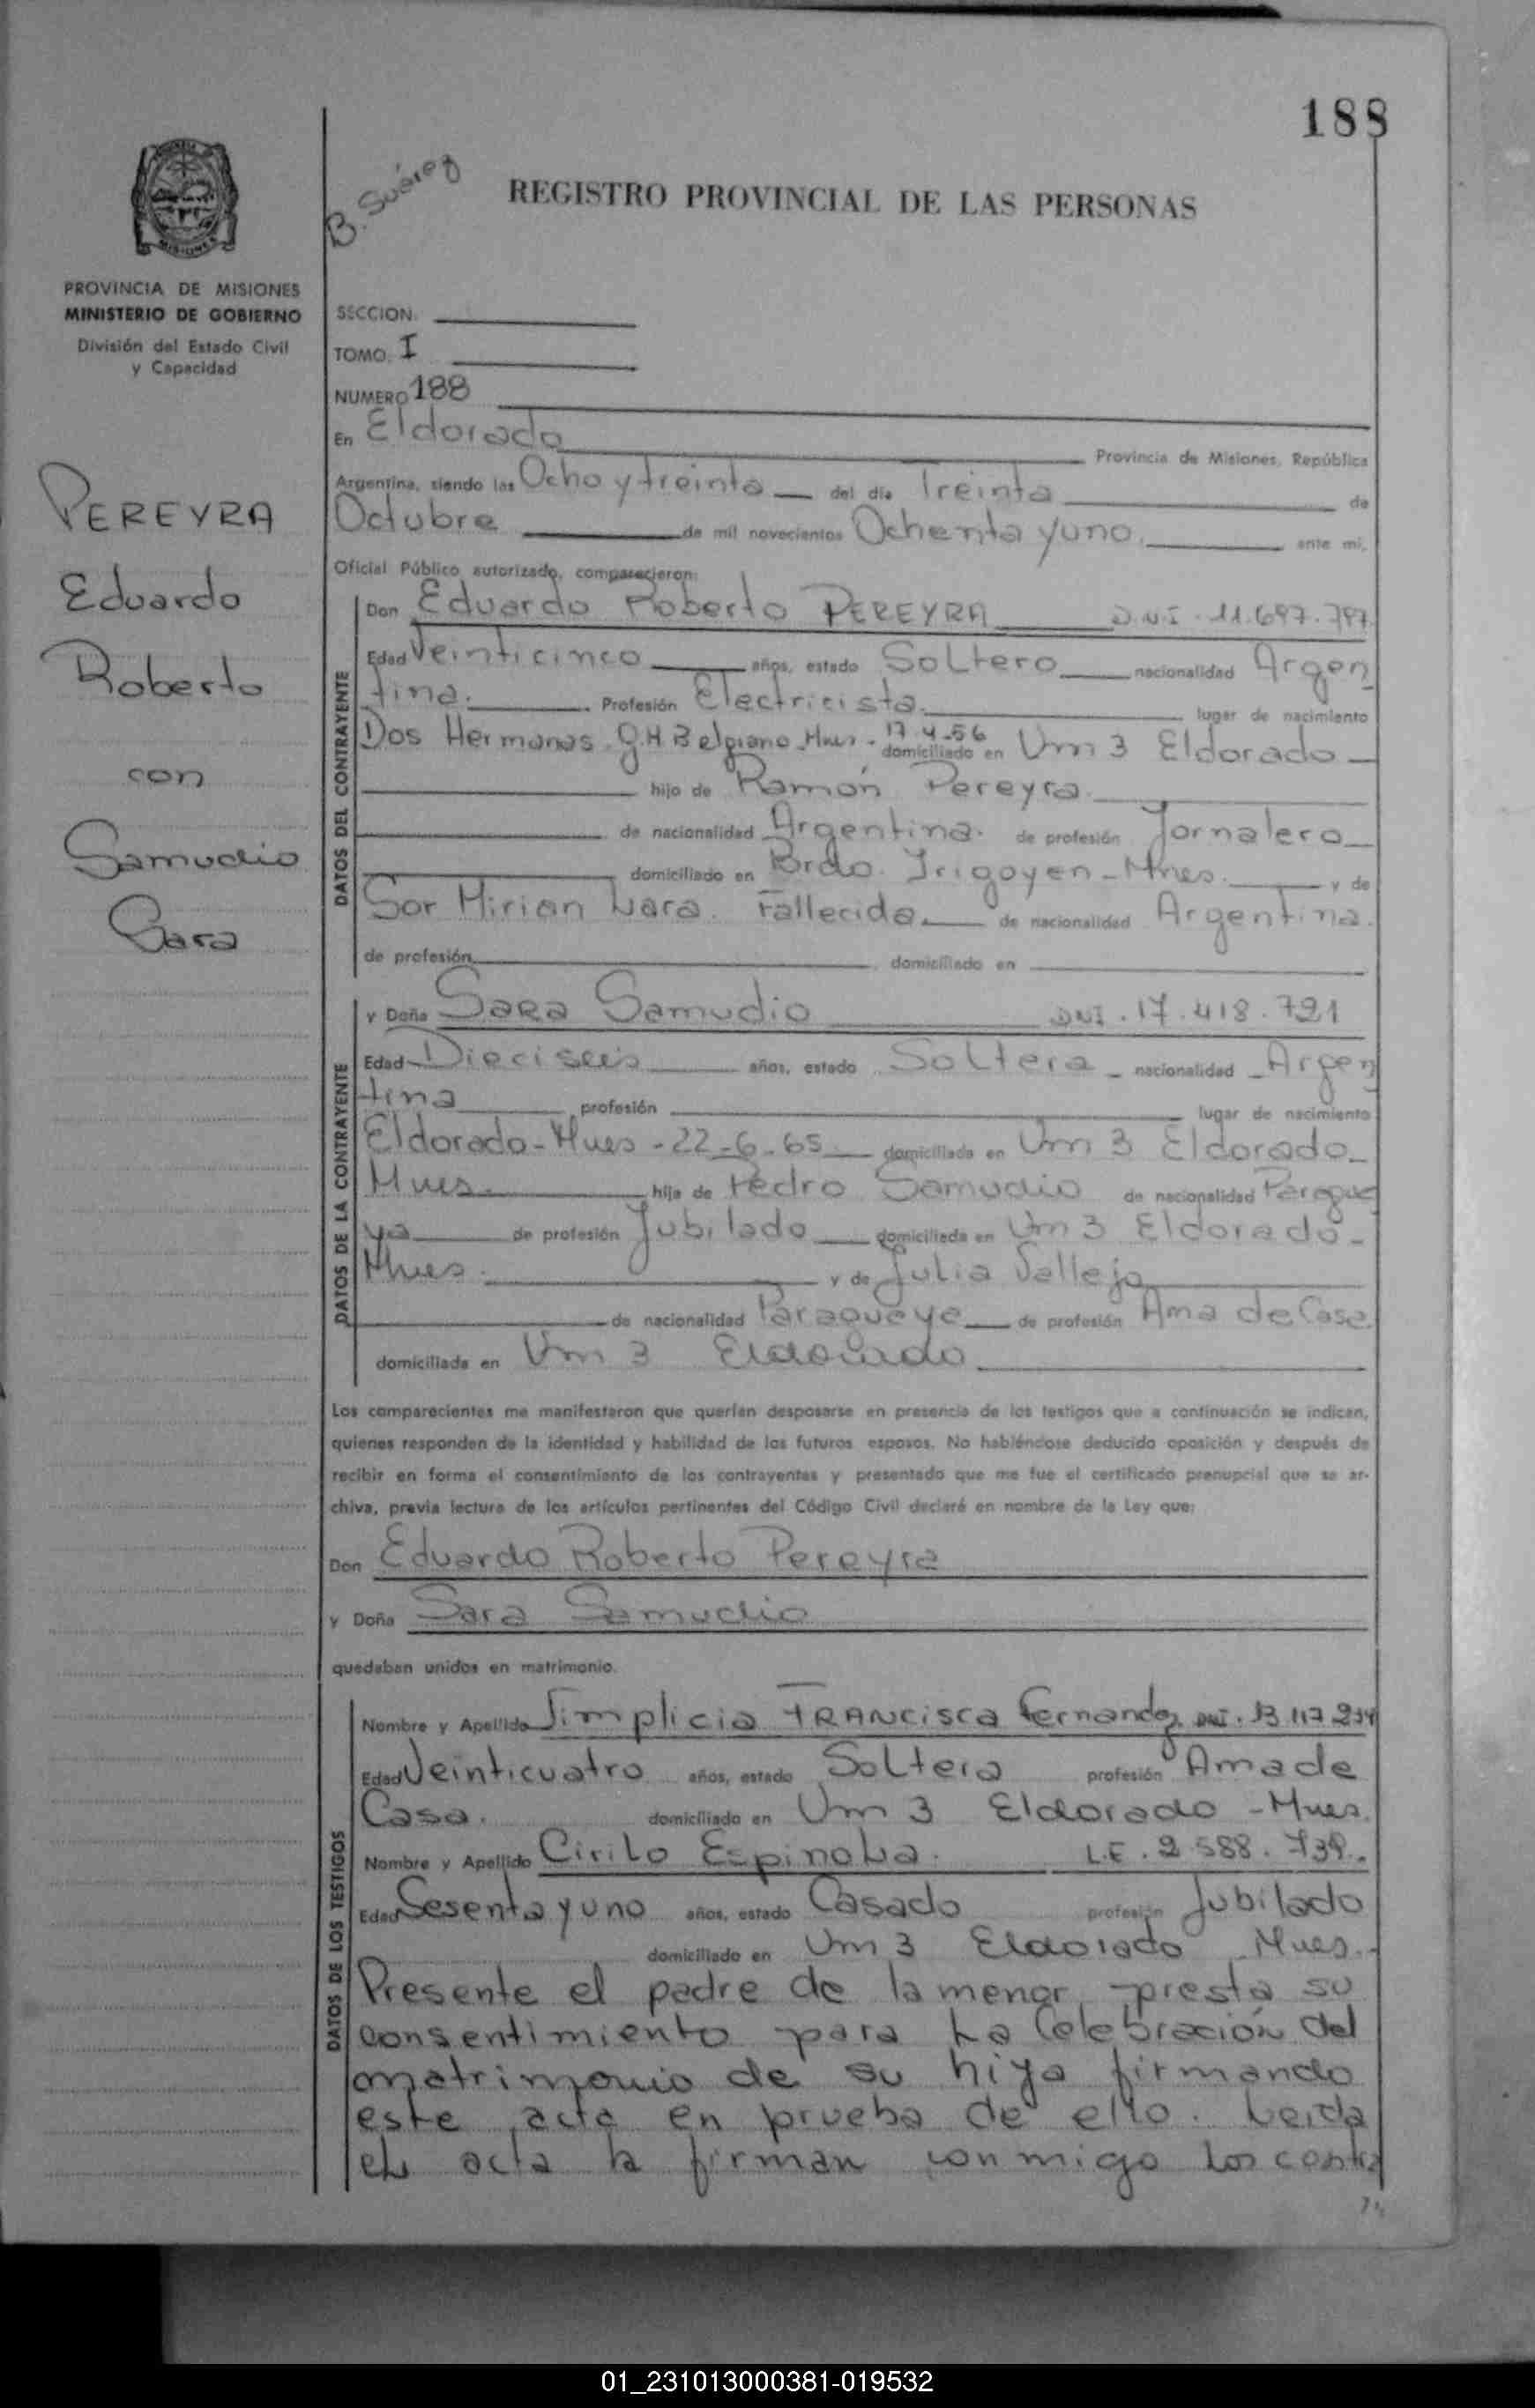 188
B. Suárez
REGISTRO PROVINCIAL DE LAS PERSONAS
MISIONES
PROVINCIA DE MISIONES
MINISTERIO DE GOBIERNO
División del Estado Civil
y Capacidad
PEREYRA
Eduardo
Roberto
con
Samudio
Sara
SECCION.
TOMO. I
NUMERO 188
En Eldorado Provincia de Misiones, República
Argentina, siendo las Ocho y treinta del día Treinta de
Octubre de mil novecientos Ochenta y uno. ante mi,
Oficial Público autorizado, comparecieron:
DATOS DEL CONTRAYENTE
Don Eduardo Roberto PEREYRA D.N.I. 11.697.797
Edad Veinticinco años, estado Soltero nacionalidad Argen
tina. Profesión Electricista. lugar de nacimiento
Dos Hermanas G.M Belgrano Mnes. 17-4-56 domiciliado en Km 3 Eldorado
hijo de Ramón Pereyra
de nacionalidad Argentina. de profesión Jornalero
domiciliado en Brdo. Irigoyen-Mnes. y de
Sor Mirian Lara. Fallecida de nacionalidad Argentina.
de profesión domiciliado en
DATOS DE LA CONTRAYENTE
y Doña Sara Samudio DNI. 17.418.721
Edad Dieciseis años, estado Soltera nacionalidad Argen
tina profesión lugar de nacimiento
Eldorado-Mnes-22-6-65 domiciliada en Km 3 Eldorado
Mnes. hija de Pedro Samudio de nacionalidad Paragua
ya de profesión Jubilado domiciliada en Km 3 Eldorado-
Mnes. y de Julia Vallejo
de nacionalidad Paraguaya de profesión Ama de Casa.
domiciliada en Km 3 Eldorado
Los comparecientes me manifestaron que querían desposarse en presencia de los testigos que a continuación se indican,
quienes responden de la identidad y habilidad de los futuros esposos. No habiéndose deducido oposición y después de
recibir en forma el consentimiento de los contrayentes y presentado que me fue el certificado prenupcial que se ar-
chiva, previa lectura de los artículos pertinentes del Código Civil declaré en nombre de la Ley que:
Don Eduardo Roberto Pereyra
y Doña Sara Samudio
quedaban unidos en matrimonio.
DATOS DE LOS TESTIGOS
Nombre y Apellido Simplicia FRANCISCA Fernandez DNI. 13.117.
Edad Veinticuatro años, estado Soltera profesión Ama de
Casa. domiciliado en Km 3 Eldorado - Mnes.
Nombre y Apellido Cirilo Espinola. L.E. 2.588.739.
Edad Sesenta y uno años, estado Casado profesión Jubilado
domiciliado en Km 3 Eldorado Mnes.
Presente el padre de la menor presta su
consentimiento para la Celebración del
matrimonio de su hija firmando
este acta en prueba de ello. Leida
el acta la firman conmigo los contra
01_231013000381-019532